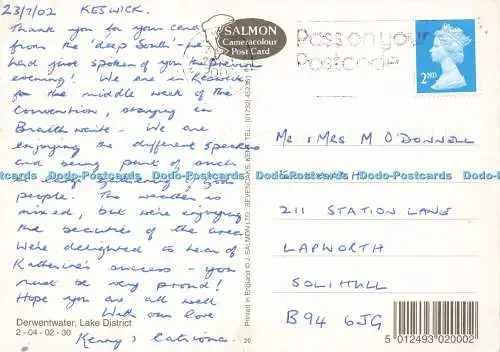 23/7/02 KESWICK.
Thank you for your card
from the 'deep South' - we
had just spoken of you the previous
evening! We are in Keswick
for the middle week of the
Convention, staying in
Braithwaite - We are
enjoying the different speakers
and being part of such
a large gathering of
people. The weather is
mixed, but we're enjoying
the beauties of the area
We're delighted to hear of
Katherine's success - you
must be very proud!
Hope you are all well
With our love
Kenny & Catriona.
Derwentwater, Lake District
2-04-02-30
SALMON
Cameracolour
Post Card
Printed in England © J. SALMON LTD., SEVENOAKS, KENT. TEL: (01732) 452381
Pass on your
Postcode
2ND
MR & MRS M O'DONNELL
211 STATION LANE
LAPWORTH
SOLIHULL
B94 6JG
5 012493 020002
Dodo-Postcards Dodo-Postcards Dodo-Postcards Dodo-Postcards Dodo-Postcards
Dodo-Postcards Dodo-Postcards Dodo-Postcards Dodo-Postcards Dodo-Postcards